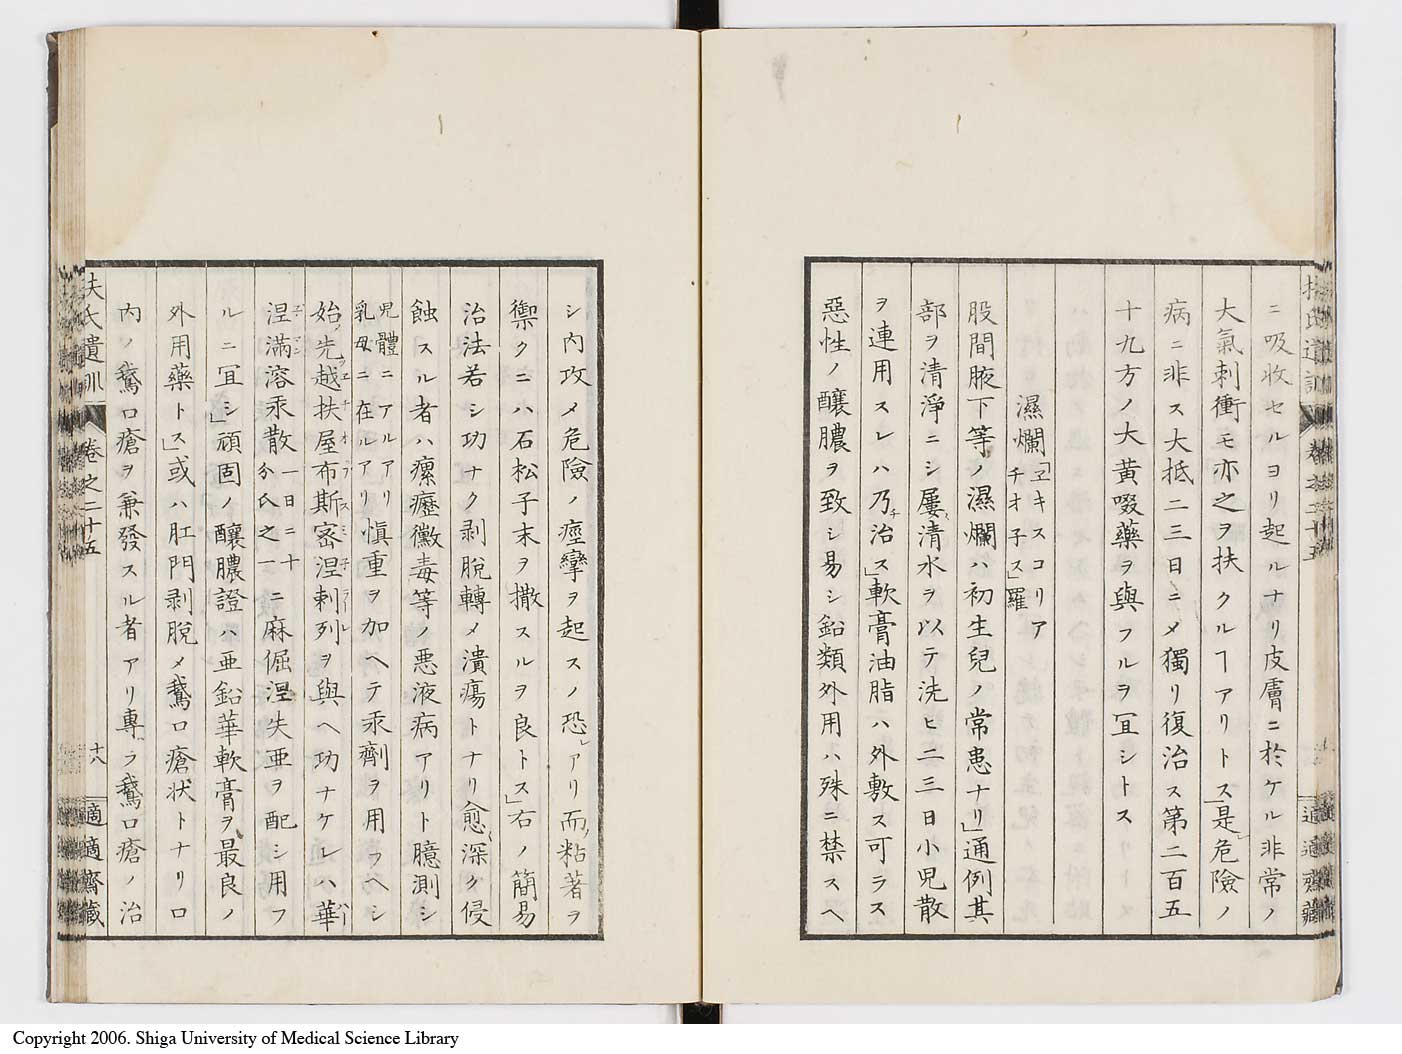 ニ吸收セルヨリ起ルナリ皮膚ニ於ケル非常ノ
大氣刺衝モ亦之ヲ扶クルヿアリトス」是レ危險ノ
病ニ非ス大抵二三日ニメ獨リ復治ス第二百五
十九方ノ大黄啜藥ヲ與フルヲ冝シトス
濕爛「ヱキスコリアチオ子ス」羅
股間腋下等ノ濕爛ハ初生兒ノ常患ナリ」通例其
部ヲ清淨ニシ屢清水ヲ以テ洗ヒ二三日小児散
ヲ連用スレハ乃チ治ス」軟膏油脂ハ外敷ス可ラス
惡性ノ釀膿ヲ致シ易シ鉛類外用ハ殊ニ禁スヘ
シ内攻メ危險ノ痙攣ヲ起スノ恐レアリ而ノ粘著ヲ
禦クニハ石松子末ヲ撒スルヲ良トス」右ノ簡易
治法若シ功ナク剥脱轉メ潰瘍トナリ愈深ク侵
蝕スル者ハ瘰癧黴毒等ノ悪液病アリト臆測シ
児體ニアルアリ乳母ニ在ルアリ愼重ヲ加ヘテ汞劑ヲ用フヘシ
始メ先ツ越扶屋布斯密涅剌列ヲ與ヘ功ナケレハ華
涅滿溶汞散一日ニ十分氏之一ニ麻倔涅失亜ヲ配シ用フ
ルニ冝シ」頑固ノ釀膿證ハ亜鉛華軟膏ヲ最良ノ
外用藥トス」或ハ肛門剥脱メ鵞口瘡状トナリ口
内ノ鵞口瘡ヲ兼發スル者アリ專ラ鵞口瘡ノ治
扶氏遺訓
卷之二十五
十八
適適齋藏
Copyright 2006. Shiga University of Medical Science Library